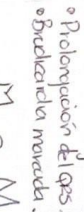 • Prolongación de QRS
• Bradicardia marcada.
M